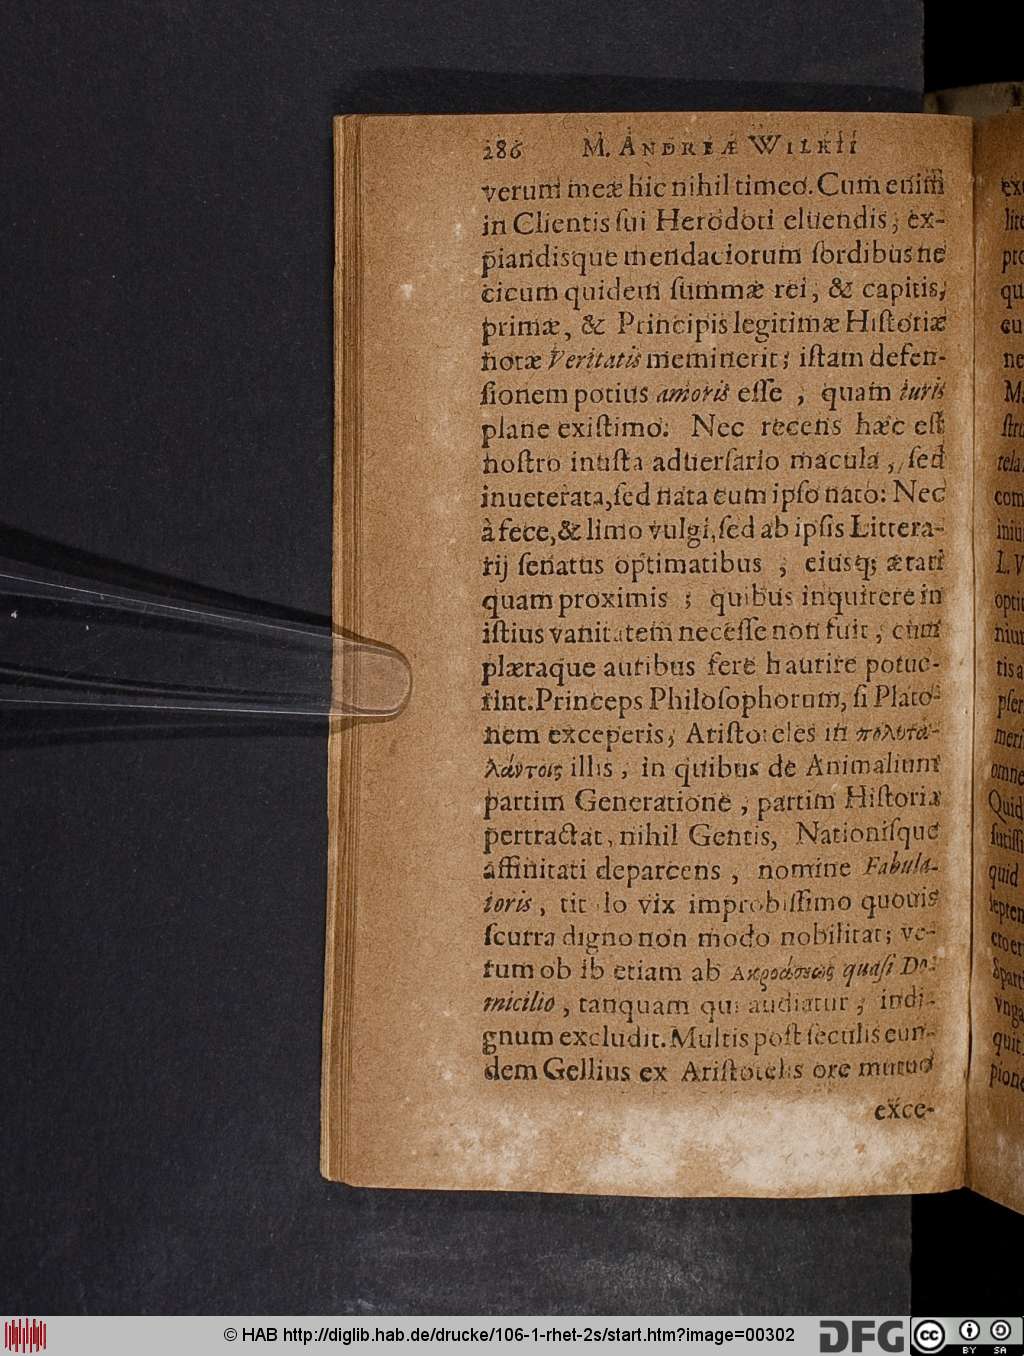 286 M. ANDREÆ WILKII
verum meæ hic nihil timeo. Cum enim
in Clientis ſui Herodoti eluendis, ex-
piandisque mendaciorum ſordibus ne
cicum quidem ſummæ rei, & capitis,
primæ, & Principis legitimæ Hiſtoriæ
notæ Veritatis meminerit; iſtam defen-
ſionem potius amoris eſſe, quam iuris
plane exiſtimo. Nec recens hæc eſt
noſtro inuſta aduerſario macula, ſed
inueterata, ſed nata cum ipſo nato: Nec
à fece, & limo vulgi, ſed ab ipſis Littera-
rij ſenatus optimatibus; eiusq; ætati
quam proximis; quibus inquirere in
iſtius vanitatem neceſſe non fuit, cum
plæraque auribus fere haurire potue-
rint. Princeps Philoſophorum, ſi Plato-
nem exceperis, Ariſtoteles in πολυτα-
λάντοις illis, in quibus de Animalium
partim Generatione, partim Hiſtoria
pertractat, nihil Gentis, Nationiſque
affinitati deparcens, nomine Fabula-
toris, titulo vix improbiſſimo quouis
ſcurra digno non modo nobilitat; ve-
rum ob id etiam ab Ακροάσεως quaſi Do-
micilio, tanquam qui audiatur, indi-
gnum excludit. Multis poſt ſeculis eun-
dem Gellius ex Ariſtotelis ore mutuo
exce-
© HAB http://diglib.hab.de/drucke/106-1-rhet-2s/start.htm?image=00302
DFG
cc BY SA